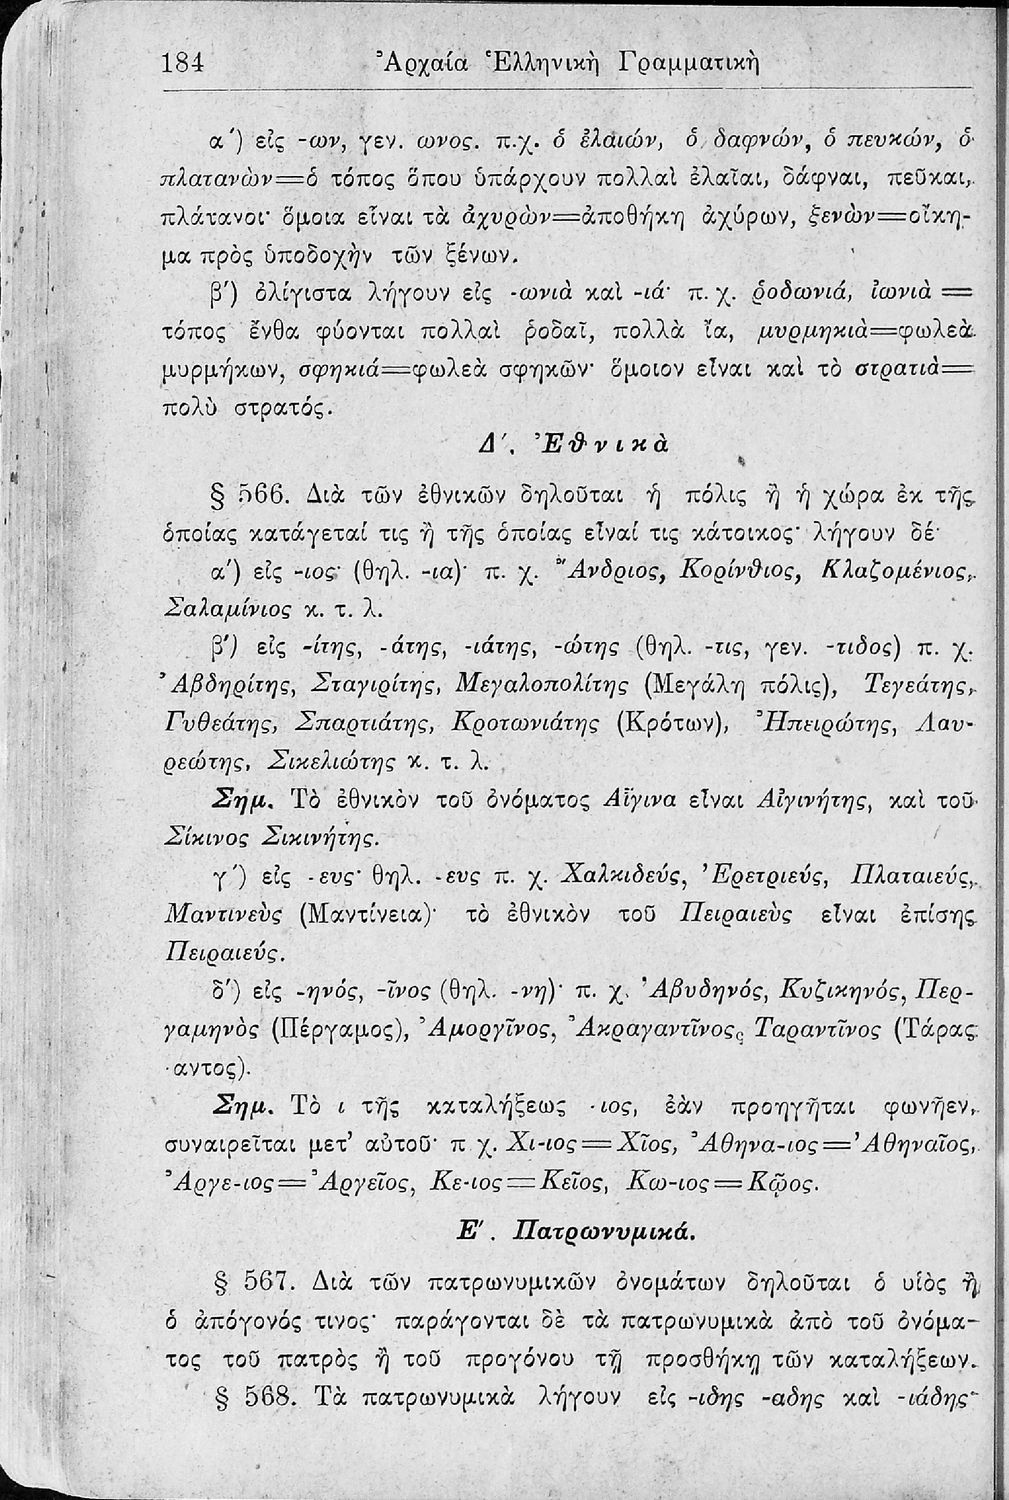 184 Ἀρχαία Ἑλληνικὴ Γραμματικὴ
α΄) εἰς -ων, γεν. ωνος. π.χ. ὁ ἐλαιών, ὁ δαφνών, ὁ πευκών, ὁ
πλατανὼν=ὁ τόπος ὅπου ὑπάρχουν πολλαὶ ἐλαῖαι, δάφναι, πεῦκαι,
πλάτανοι· ὅμοια εἶναι τὰ ἀχυρὼν=ἀποθήκη ἀχύρων, ξενὼν=οἴκη-
μα πρὸς ὑποδοχὴν τῶν ξένων.
β΄) ὀλίγιστα λήγουν εἰς -ωνιὰ καὶ -ιά· π. χ. ῥοδωνιά, ἰωνιὰ =
τόπος ἔνθα φύονται πολλαὶ ῥοδαῖ, πολλὰ ἴα, μυρμηκιὰ=φωλεὰ
μυρμήκων, σφηκιά=φωλεὰ σφηκῶν· ὅμοιον εἶναι καὶ τὸ στρατιὰ=
πολὺ στρατός.
Δ΄. Ἐθνικὰ
§ 566. Διὰ τῶν ἐθνικῶν δηλοῦται ἡ πόλις ἢ ἡ χώρα ἐκ τῆς
ὁποίας κατάγεταί τις ἢ τῆς ὁποίας εἶναί τις κάτοικος· λήγουν δέ·
α΄) εἰς -ιος· (θηλ. -ια)· π. χ. Ἄνδριος, Κορίνθιος, Κλαζομένιος,
Σαλαμίνιος κ. τ. λ.
β΄) εἰς -ίτης, -άτης, -ιάτης, -ώτης (θηλ. -τις, γεν. -τιδος) π. χ.
Ἀβδηρίτης, Σταγιρίτης, Μεγαλοπολίτης (Μεγάλη πόλις), Τεγεάτης,
Γυθεάτης, Σπαρτιάτης, Κροτωνιάτης (Κρότων), Ἠπειρώτης, Λαυ-
ρεώτης, Σικελιώτης κ. τ. λ.
Σημ. Τὸ ἐθνικὸν τοῦ ὀνόματος Αἴγινα εἶναι Αἰγινήτης, καὶ τοῦ
Σίκινος Σικινήτης.
γ΄) εἰς -ευς· θηλ. -ευς π. χ. Χαλκιδεύς, Ἐρετριεύς, Πλαταιεύς,
Μαντινεὺς (Μαντίνεια)· τὸ ἐθνικὸν τοῦ Πειραιεὺς εἶναι ἐπίσης
Πειραιεύς.
δ΄) εἰς -ηνός, -ῖνος (θηλ. -νη)· π. χ. Ἀβυδηνός, Κυζικηνός, Περ-
γαμηνὸς (Πέργαμος), Ἀμοργῖνος, Ἀκραγαντῖνος, Ταραντῖνος (Τάρας
-αντος).
Σημ. Τὸ ι τῆς καταλήξεως -ιος, ἐὰν προηγῆται φωνῆεν,
συναιρεῖται μετ' αὐτοῦ· π χ. Χι-ιος=Χῖος, Ἀθηνα-ιος=Ἀθηναῖος,
Ἀργε-ιος=Ἀργεῖος, Κε-ιος=Κεῖος, Κω-ιος=Κῷος.
Ε΄. Πατρωνυμικά.
§ 567. Διὰ τῶν πατρωνυμικῶν ὀνομάτων δηλοῦται ὁ υἱὸς ἢ
ὁ ἀπόγονός τινος· παράγονται δὲ τὰ πατρωνυμικὰ ἀπὸ τοῦ ὀνόμα-
τος τοῦ πατρὸς ἢ τοῦ προγόνου τῇ προσθήκῃ τῶν καταλήξεων.
§ 568. Τὰ πατρωνυμικὰ λήγουν εἰς -ιδης -αδης καὶ -ιάδης·